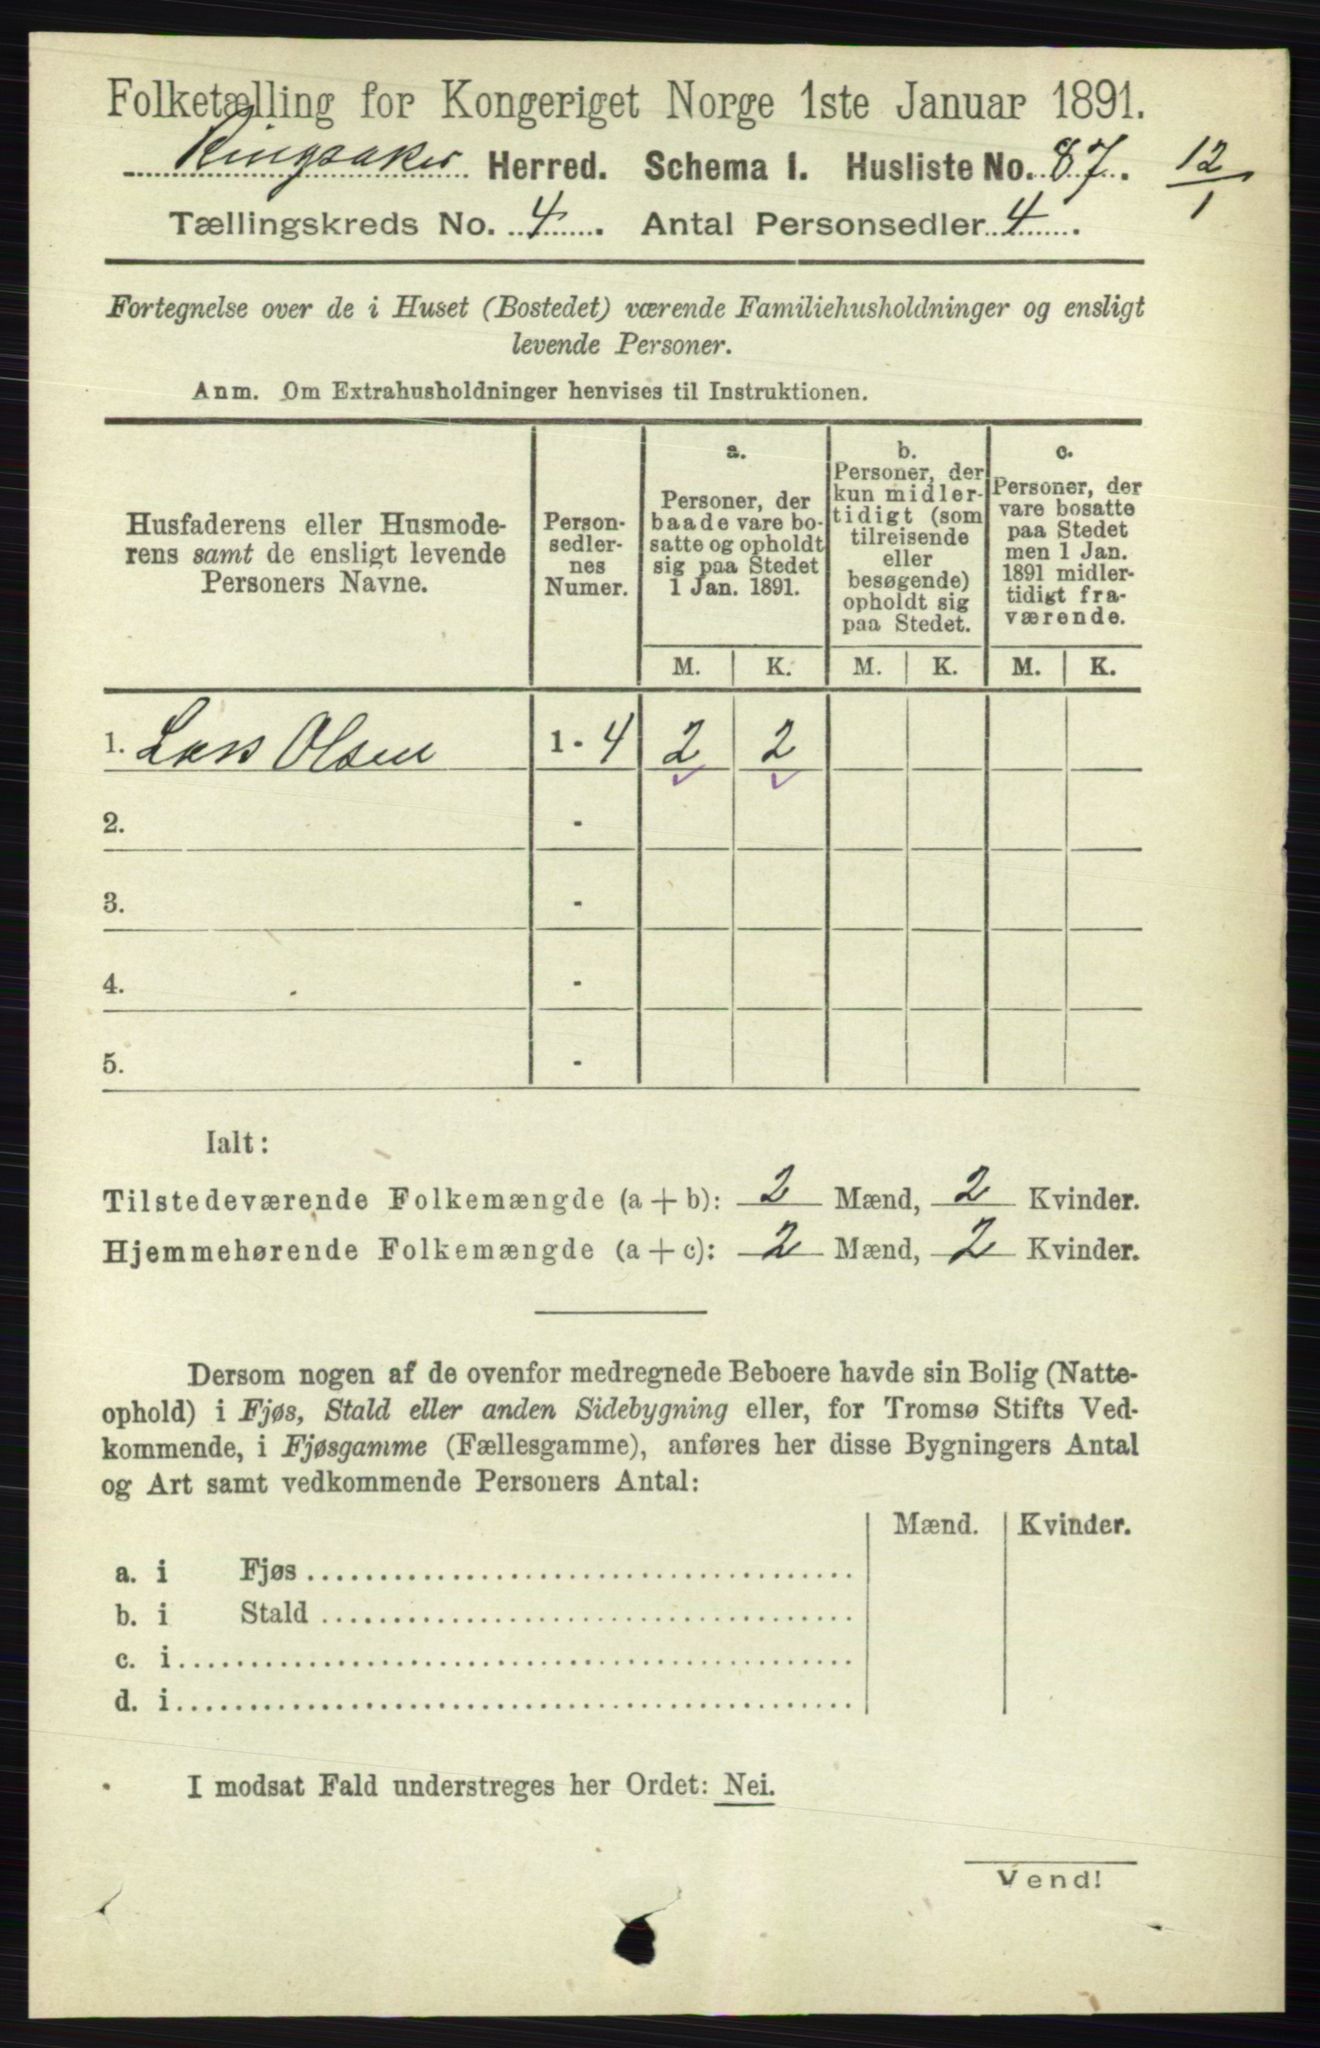 Folketælling for Kongeriget Norge 1ste Januar 1891.
Ringsaker Herred. Schema 1. Husliste No. 87.
12/1
Tællingskreds No. 4. Antal Personsedler 4.
Fortegnelse over de i Huset (Bostedet) værende Familiehusholdninger og ensligt
levende Personer.
Anm. Om Extrahusholdninger henvises til Instruktionen.
Husfaderens eller Husmode-
rens samt de ensligt levende
Personers Navne.
Person-
sedler-
nes
Numer.
a.
Personer, der
baade vare bo-
satte og opholdt
sig paa Stedet
1 Jan. 1891.
b.
Personer, der
kun midler-
tidigt (som
tilreisende
eller
besøgende)
opholdt sig
paa Stedet.
c.
Personer, der
vare bosatte
paa Stedet
men 1 Jan.
1891 midler-
tidigt fra-
værende.
M. K. M. K. M. K.
1. Lars Olsen 1 - 4 2 2
2. -
3. -
4. -
5. -
Ialt:
Tilstedeværende Folkemængde (a + b): 2 Mænd, 2 Kvinder.
Hjemmehørende Folkemængde (a + c): 2 Mænd, 2 Kvinder.
Dersom nogen af de ovenfor medregnede Beboere havde sin Bolig (Natte-
ophold) i Fjøs, Stald eller anden Sidebygning eller, for Tromsø Stifts Ved-
kommende, i Fjøsgamme (Fællesgamme), anføres her disse Bygningers Antal
og Art samt vedkommende Personers Antal:
Mænd. Kvinder.
a. i Fjøs
b. i Stald
c. i
d. i
I modsat Fald understreges her Ordet: Nei.
Vend!